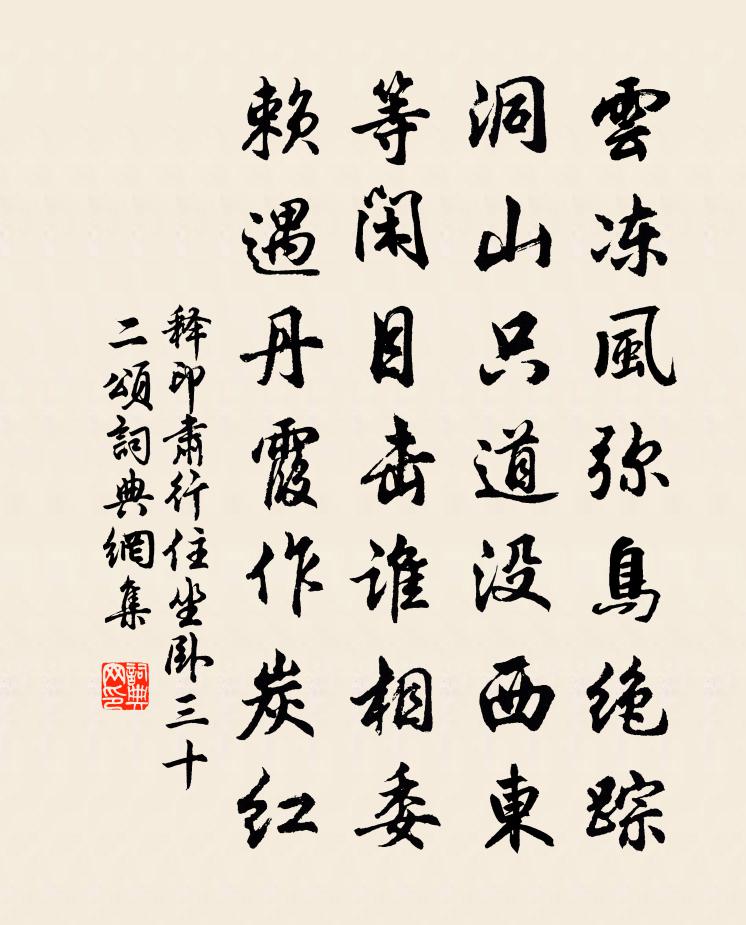 雲冻風弥鳥绝踪
洞山只道没西東
等闲目击谁相委
赖遇丹霞作炭红
释印肃行住坐卧三十
二頌詞典網集
詞典
网印